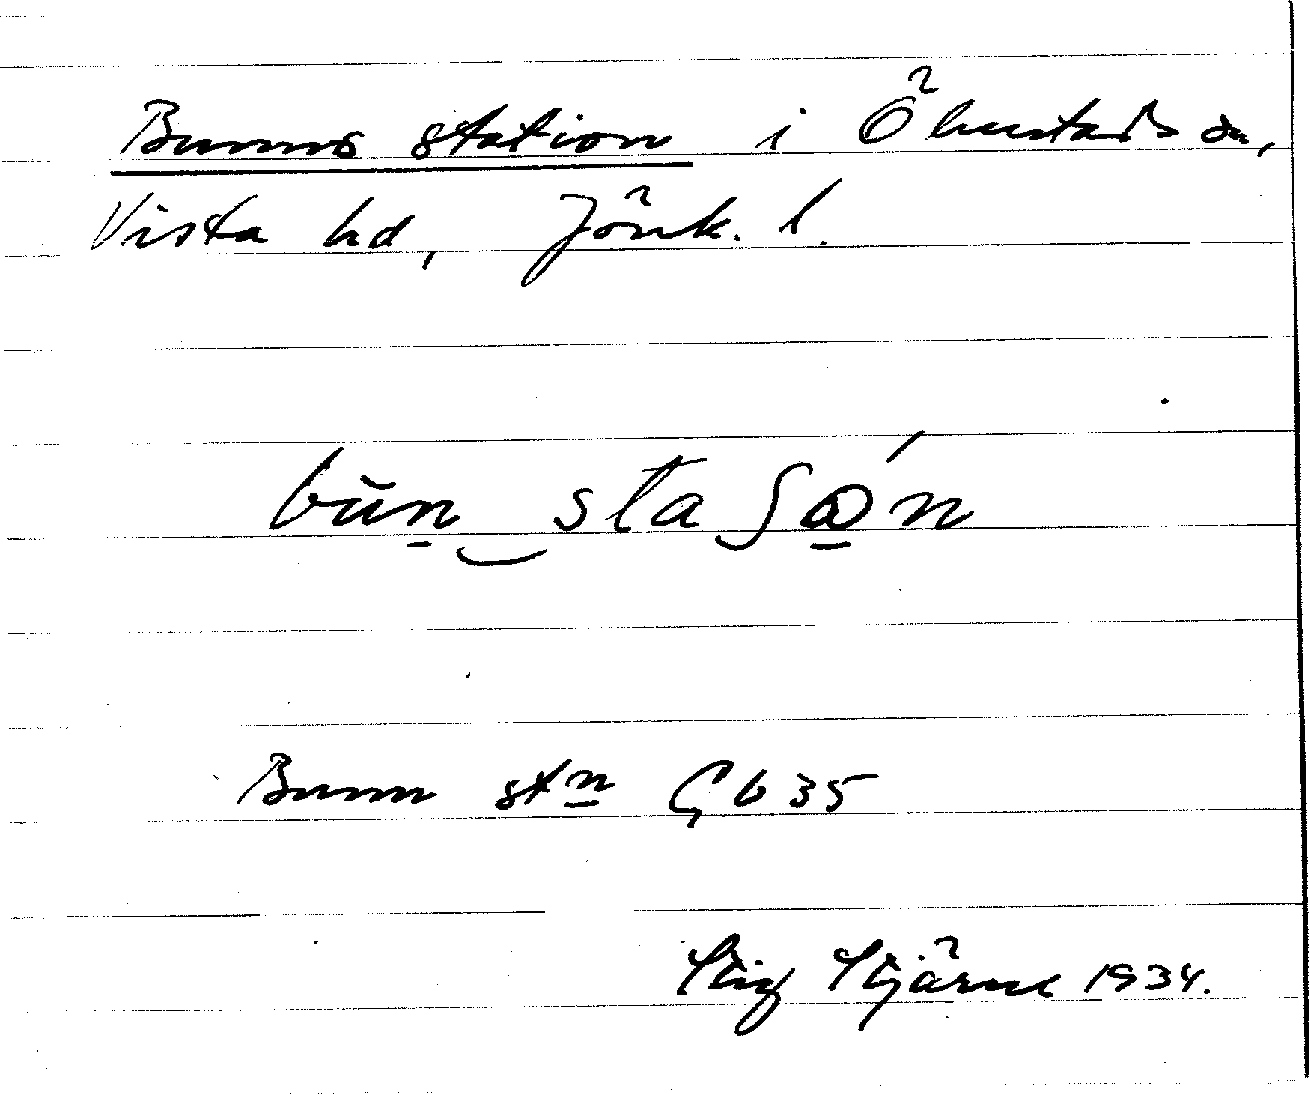 Bunns station i Ölmstads sn,
Vista hd, Jönk. l.
bŭn̲‿staʃώ̲n
Bunn stn Gb 35
Stig Stjärne 1934.